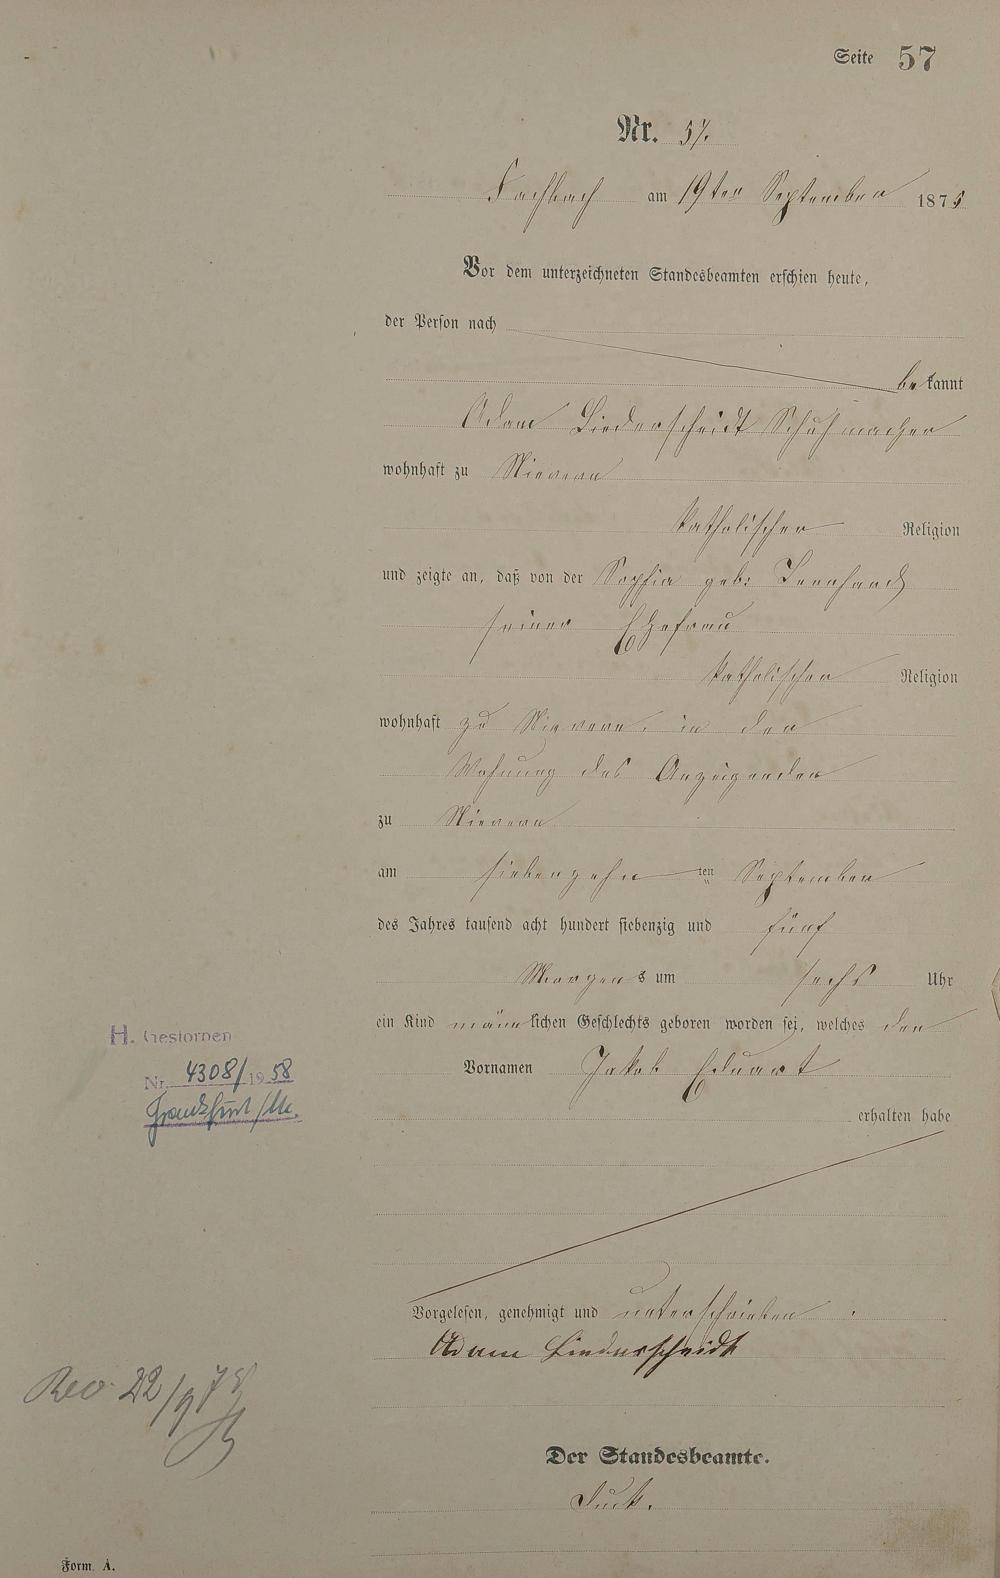 Seite 57
Nr. 57.
Fachbach am 19ten September 1875
Vor dem unterzeichneten Standesbeamten erschien heute,
der Person nach
bekannt
Adam Liederscheidt Schuhmacher
wohnhaft zu Nievern
katholischer Religion
und zeigte an, daß von der Sophia geb: Bernhard
seiner Ehefrau
katholischer Religion
wohnhaft zu Nievern, in der
Wohnung des Anzeigenden
zu Nievern
am siebenzehnten September
des Jahres tausend acht hundert siebenzig und fünf
Morgens um sechs Uhr
ein Kind männlichen Geschlechts geboren worden sei, welches den
Vornamen Jakob Eduart
erhalten habe
H. Gestorben
Nr. 4308/1958
Frankfurt/M.
Vorgelesen, genehmigt und unterschrieben
Adam Liederscheidt
Rev. 22/9 75
Der Standesbeamte.
Form. A.